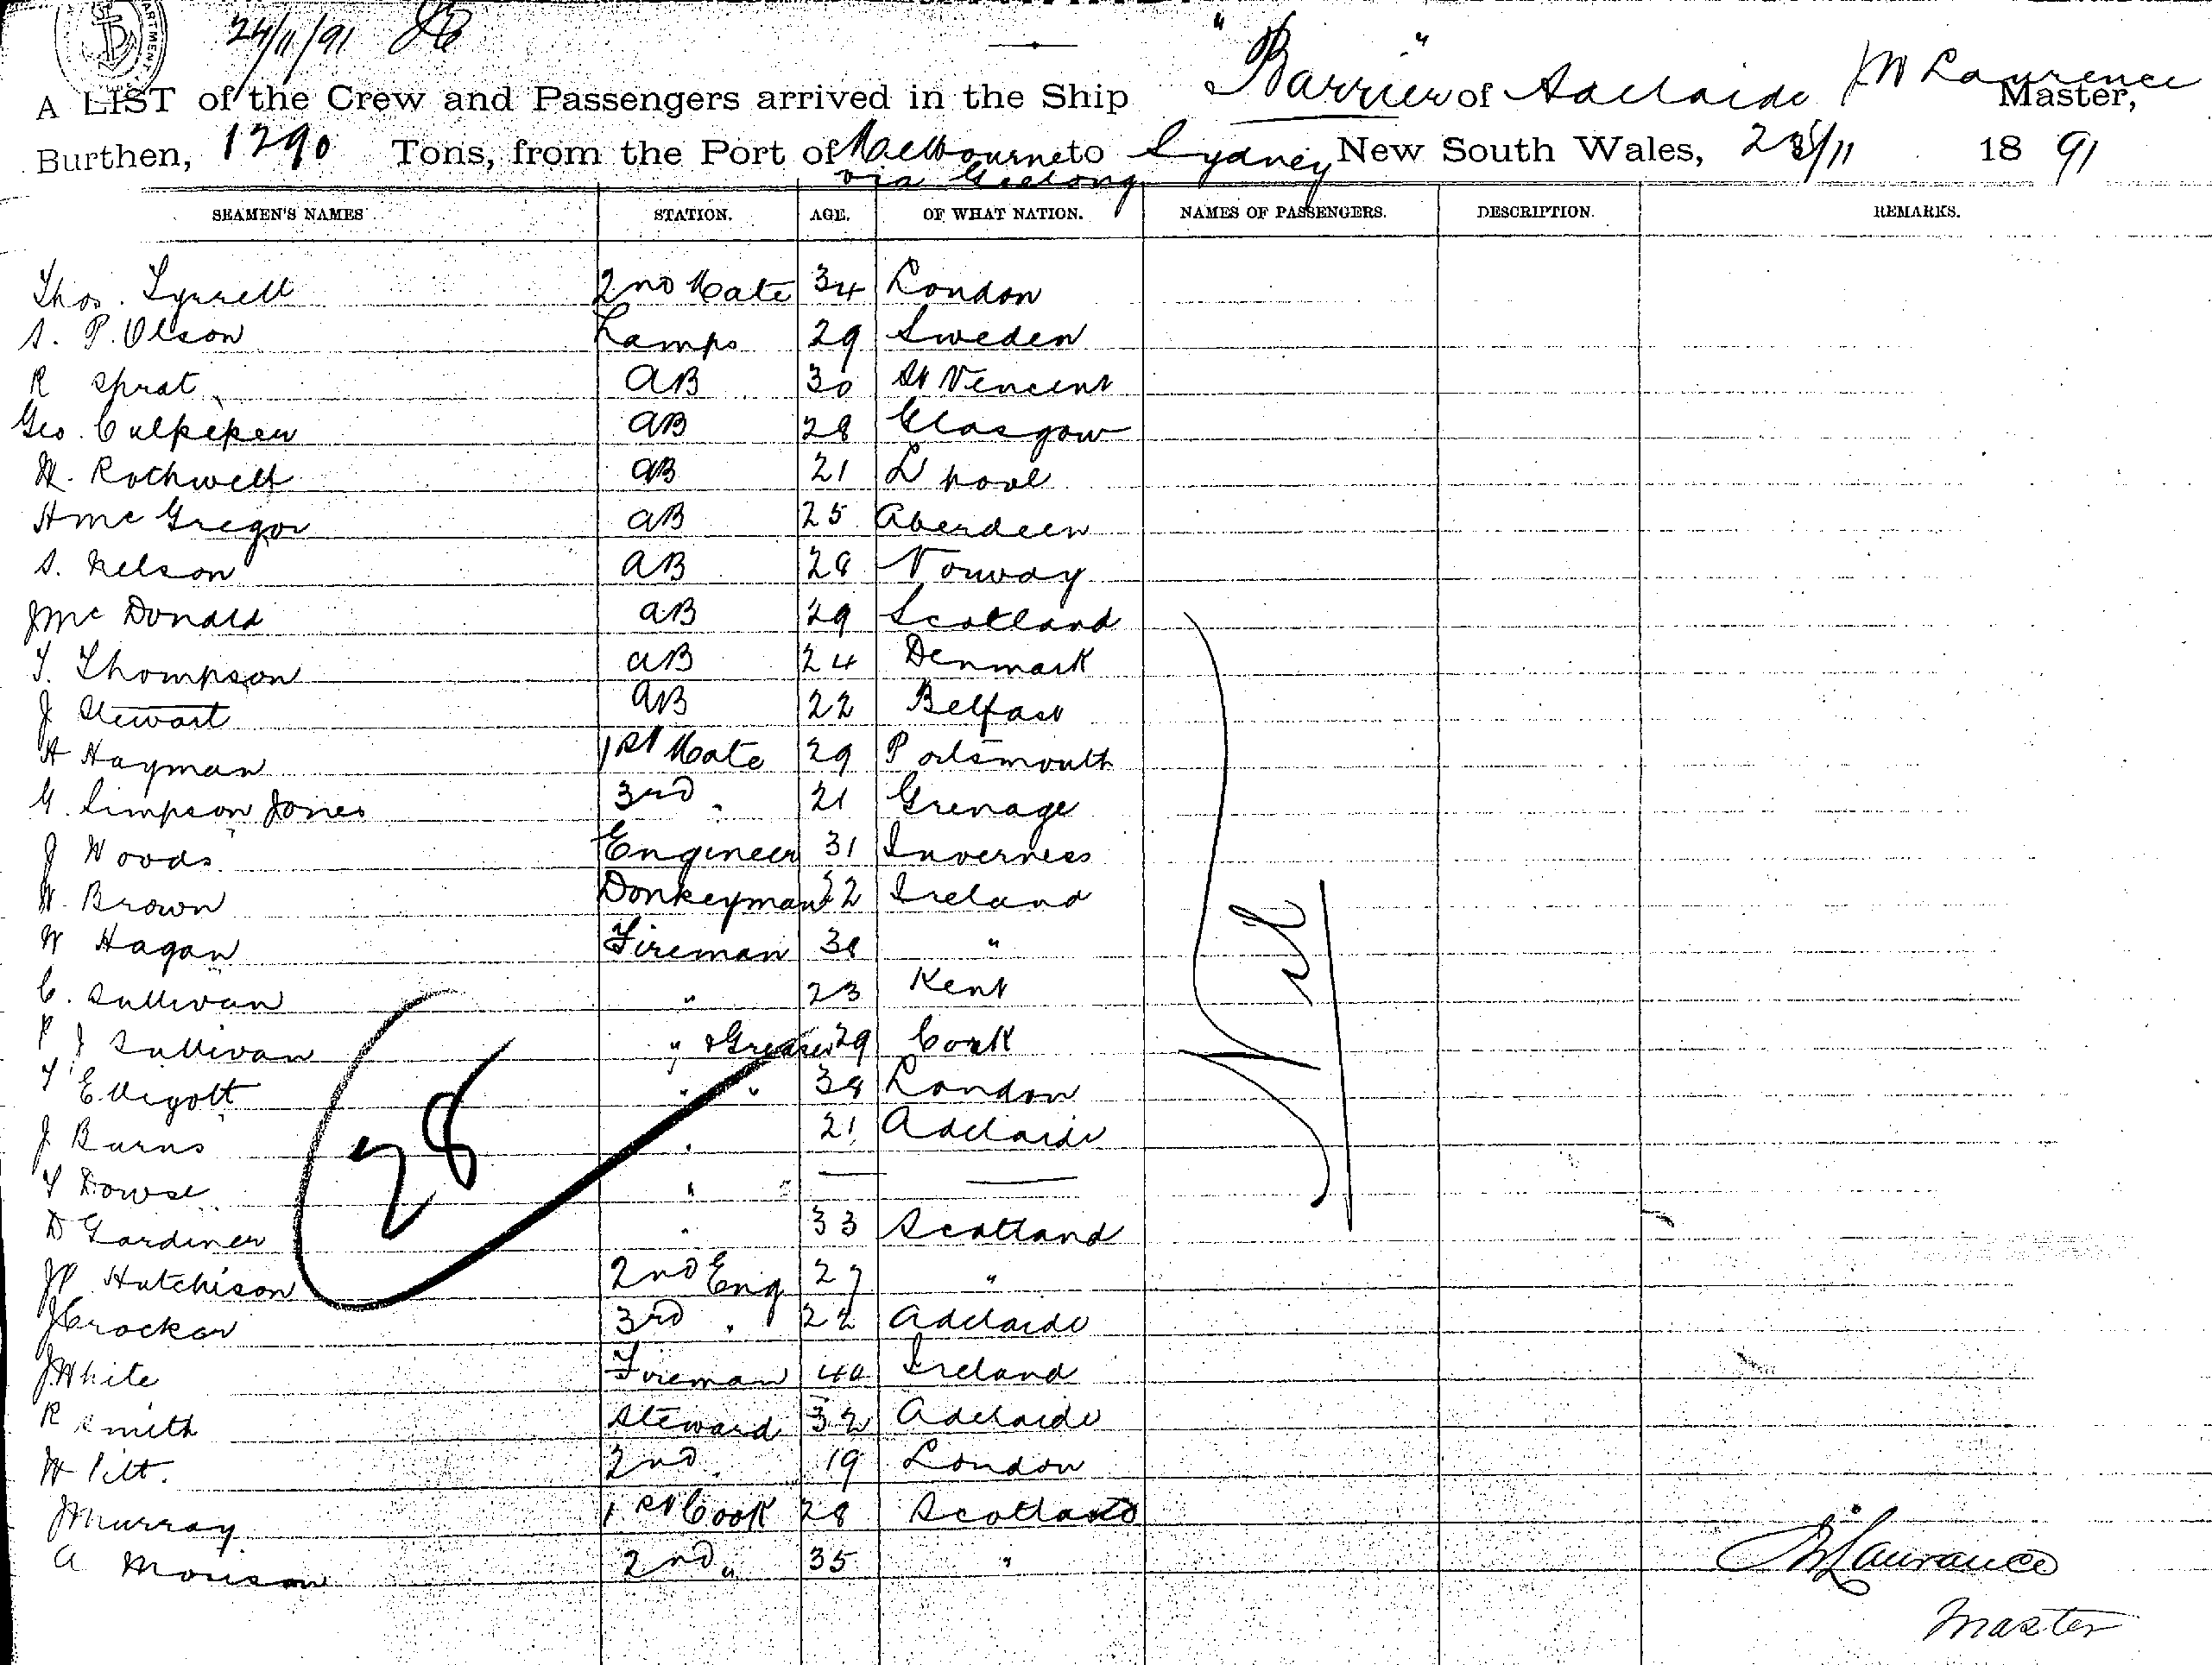 24/11/91
A LIST of the Crew and Passengers arrived in the Ship "Barrier" of Adelaide J W Laurence Master,
Burthen, 1290 Tons, from the Port of Melbourne to Sydney New South Wales, 23/11 1891
via Geelong
SEAMEN'S NAMES STATION. AGE. OF WHAT NATION. NAMES OF PASSENGERS. DESCRIPTION. REMARKS.
Thos. Tyrrell 2nd Mate 34 London
S. P. Olson Lamps 29 Sweden
R Sprat AB 30 St Vencent
Geo. Culpeper AB 28 Glasgow
W. Rothwell AB 21 L'pool
A Mc Gregor AB 25 Aberdeen
S. Nelson AB 28 Norway
J Mc Donald AB 29 Scotland
T. Thompson AB 24 Denmark
J Stewart AB 22 Belfast
A Hayman 1st Mate 29 Portsmouth
G. Simpson Jones 3rd " 21 Grenage
J Woods Engineer 31 Inverness
W. Brown Donkeyman 22 Ireland
W Hagan Fireman 38 "
C. Sullivan " 23 Kent
P J Sullivan " & Greaser 29 Cork
T Elligott " " 38 London
J Burns " 21 Adelaide
T Dowse " " — —
D Gardiner " 33 Scotland
J P Hutchison 2nd Eng 27 "
J Crocker 3rd " 22 Adelaide
J White Fireman 40 Ireland
R Smith Steward 32 Adelaide
W Pitt. 2nd 19 London
J Murray 1st Cook 28 Scotland
A Morison 2nd " 35 "
28
Nil
Laurance
Master